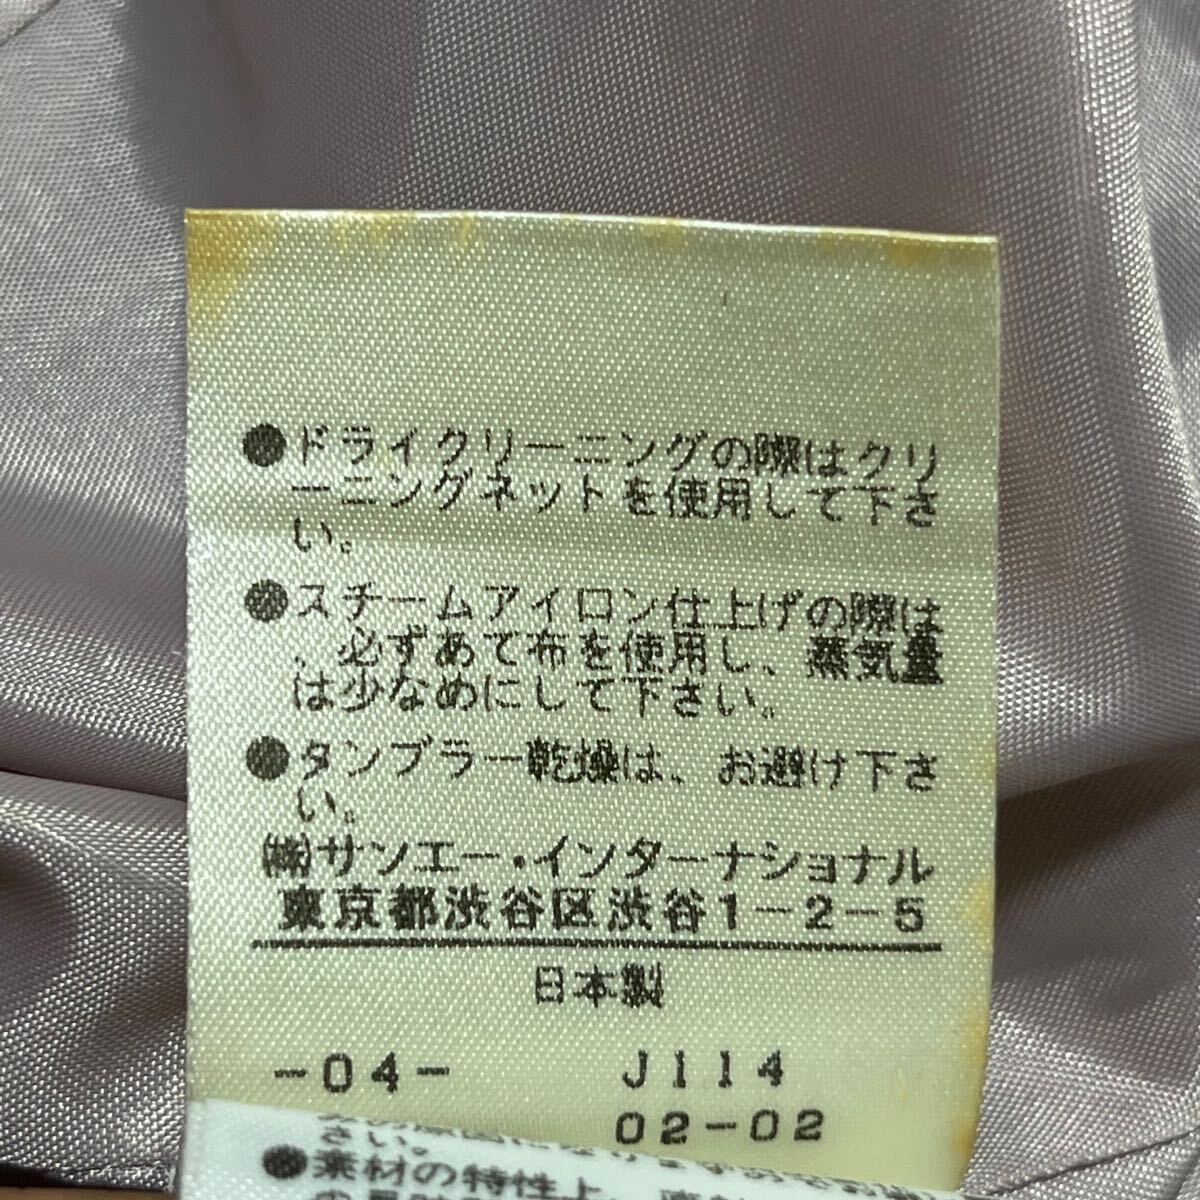 ●ドライクリーニングの際はクリ
ーニングネットを使用して下さ
い。
●スチームアイロン仕上げの際は
、必ずあて布を使用し、蒸気量
は少なめにして下さい。
●タンブラー乾燥は、お避け下さ
い。
㈱サンエー・インターナショナル
東京都渋谷区渋谷1-2-5
日本製
-04- J114
02-02
さい。
●素材の特性上、